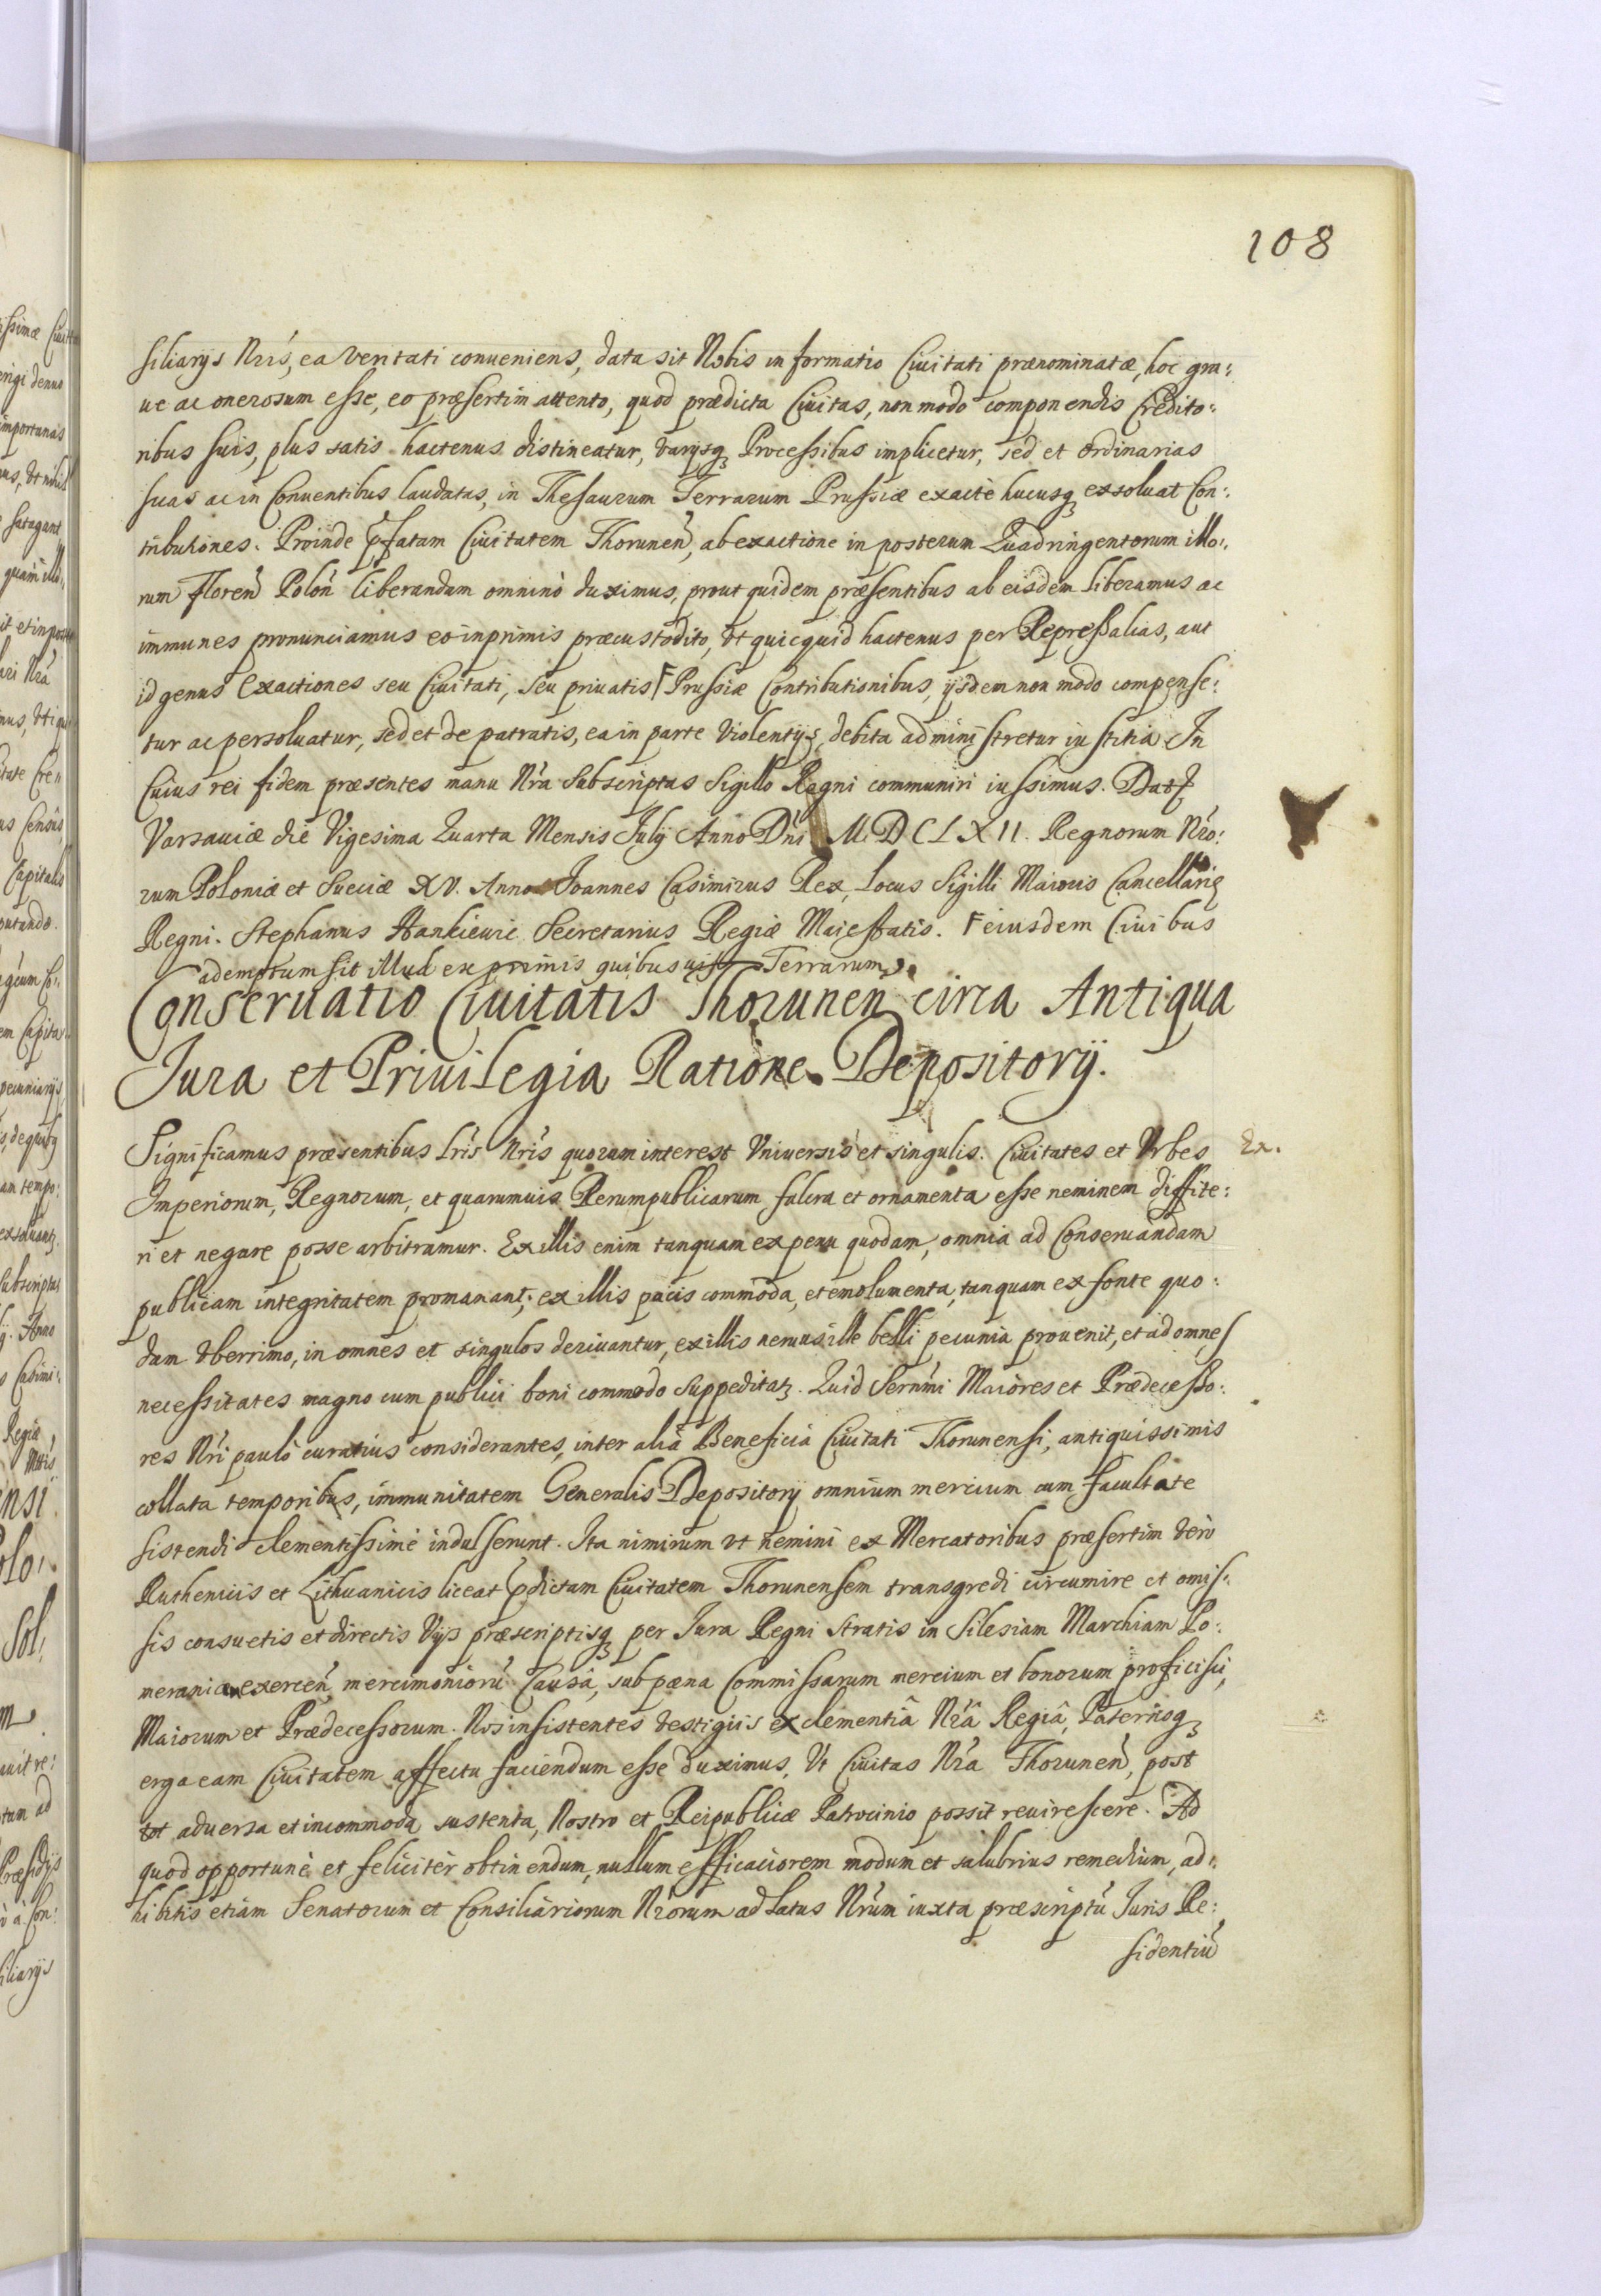 108
siliarijs Nris, ea veritati conueniens, data sit Nobis informatio Ciuitati prænominatæ, hoc gra:
ue ac onerosum esse, eo præsertim attento, quod prædicta Ciuitas, non modo componendis Credito:
ribus suis, plus satis hactenus distineatur, varijsq Processibus implicetur, sed et ordinarias
suas ac in Conuentibus laudatas, in Thesaurum Terrarum Prussiæ exacte hucusq exsoluat Con:
tributiones. Proinde pfatam Ciuitatem Thorunen, ab exactione in posterum Quadringentorum illo:
rum floren Polon liberandam omninò duximus, prout quidem præsentibus ab eisdem liberamus ac
immunes pronunciamus eo inprimis præcustodito, vt quicquid hactenus per Repressalias, aut
id genus Exactiones seu Ciuitati, seu priuatis Γ Prussiæ Contributionibus, ijsdem non modo compense:
tur ac persoluatur, sed et de patratis, ea in parte violentijs, debita administretur iustitia. In
Cuius rei fidem præsentes manu Nra subscriptas Sigillo Regni communiri iussimus. Datt
Varsauiæ die Vigesima Quarta Mensis Julij Anno Dni M. D C L X II. Regnorum Nro:
rum Poloniæ et Sueciæ XV. Anno Joannes Casimirus Rex, Locus Sigilli Maioris Cancellariæ
Regni. Stephanus Hankiewic Secretarius Regiæ Maiestatis. Γ eiusdem Ciuibus
ademptum sit illud ex primis quibusuis Terrarum
Conseruatio Ciuitatis Thorunen circa Antiqua
Jura et Priuilegia Ratione Depositorij.
Significamus præsentibus lris Nris quorum interest Vniuersis et singulis. Ciuitates et Vrbes Ex.
Imperiorum, Regnorum, et quarumuis Rerumpublicarum fulcra et ornamenta esse neminem diffite:
ri et negare posse arbitramur. Ex illis enim tanquam ex penu quodam, omnia ad Conseruandam
publicam integritatem promanant; ex illis pacis commoda, et emolumenta, tanquam ex fonte quo:
dam vberrimo, in omnes et singulos deriuantur, ex illis neruus ille belli pecunia prouenit, et ad omnes
necessitates magno cum publici boni commodo suppeditatz. Quid Sernmi Maiores et Prædecesso:
res Nri paulò curatius considerantes, inter alia Beneficia Ciuitati Thorunensi, antiquissimis
collata temporibus, immunitatem Generalis Depositorij omnium mercium cum facultate
sistendi clementissimè indulserunt. Ita nimirum vt nemini ex Mercatoribus præsertim verò
Ruthenicis et Lithuanicis liceat pdictam Ciuitatem Thorunensem transgredi circumire et omis:
sis consuetis et directis Vijs præscriptisq per Jura Regni stratis in Silesiam Marchiam Po:
meraniam exercen mercimonioru Causâ, sub pæna Commissarum mercium et bonorum proficisci,
Maiorum et Prædecessorum. Nos insistentes vestigiis ex clementiâ Nrâ Regiâ, Paternoq
erga eam Ciuitatem affectu faciendum esse duximus, Vt Ciuitas Nra Thorunen, post
tot aduersa et incommoda sustenta, Nostro et Reipublicæ Patrocinio possit reuirescere. Ad
quod opportunè et feliciter obtinendum, nullum efficaciorem modum et salubrius remedium, ad:
hibitis etiam Senatorum et Consiliariorum Nrorum ad Latus Nrum iuxta præscriptu Juris Re:
sidentiu